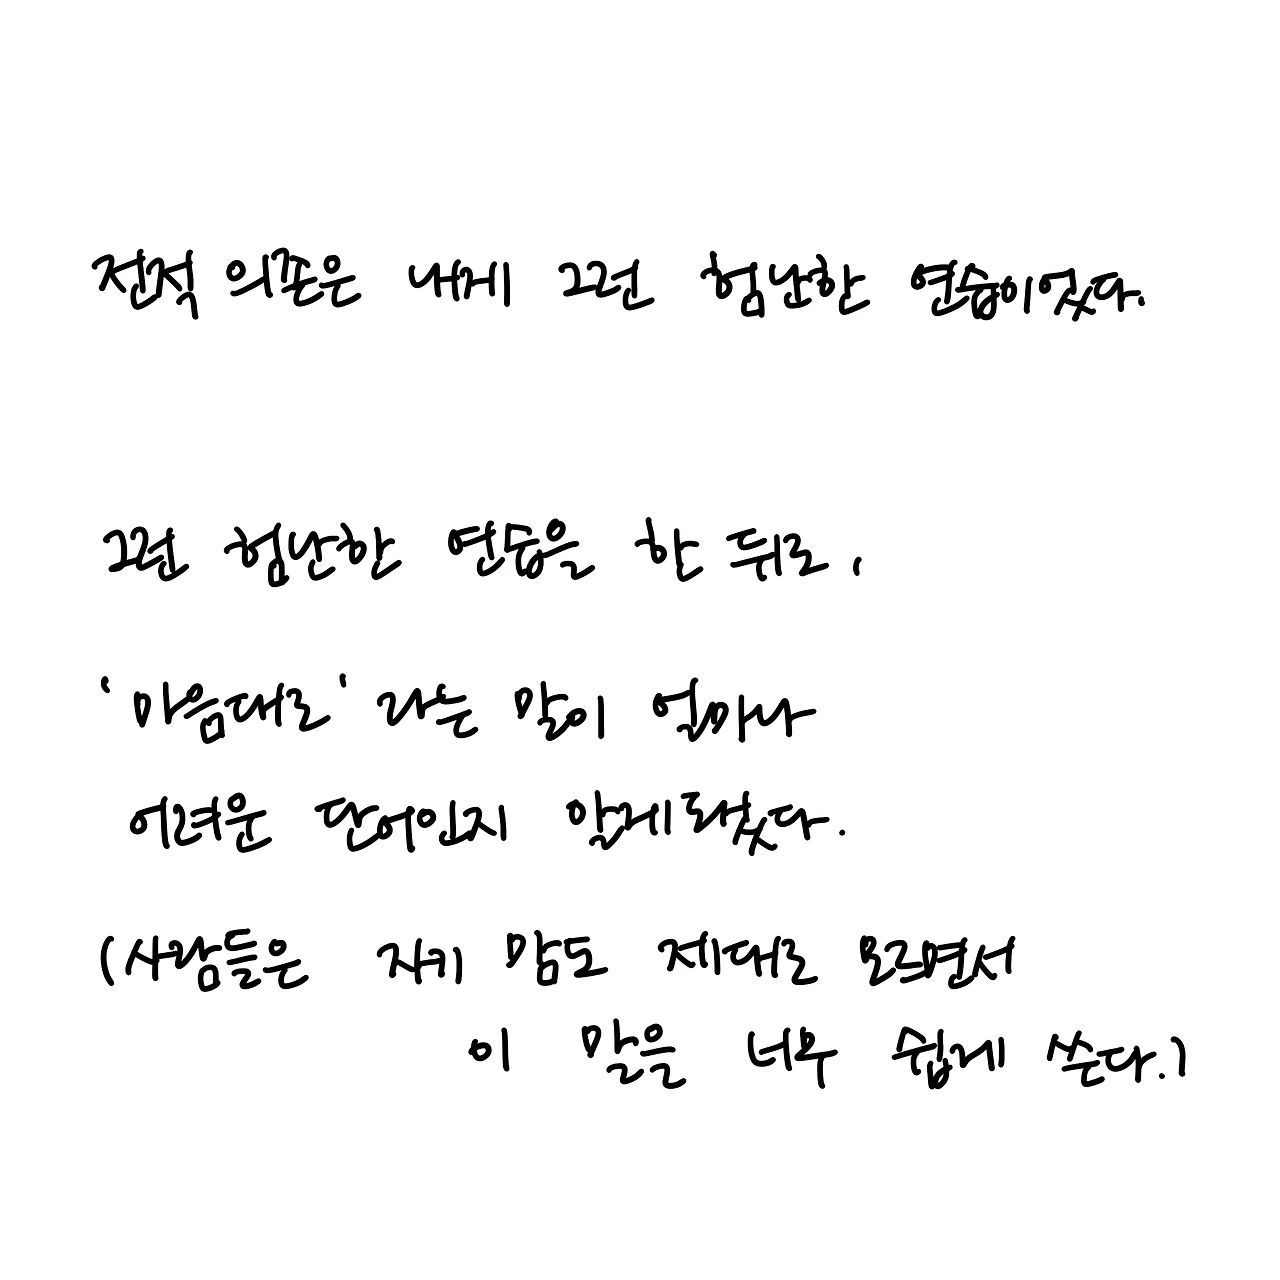 전적 의존은 내게 그런 험난한 연습이었다.
그런 험난한 연습을 한 뒤로,
'마음대로' 라는 말이 얼마나
어려운 단어인지 알게되었다.
(사람들은 자기 맘도 제대로 모르면서
이 말을 너무 쉽게 쓴다.)